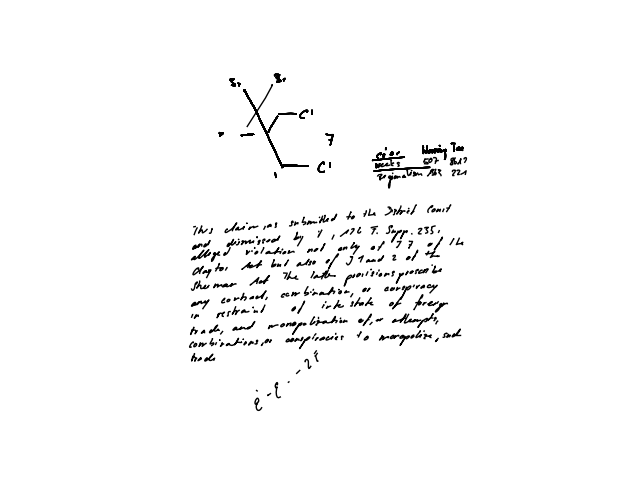 Br
Br
Cl
7
Cl
color
weeks 607 8617
22n
This claim was submitted to the District Court
and dismissed by 1, 176 F. Supp. 235.
alleged violation not only of 7 of the
Clayton Act but also of 1 and 2 of
Sherman Act The latter provisions proscribe
any contract, combination, or conspiracy
in restraint of interstate of foreign
trade, and monopolization of, or attempts,
combinations, or conspiracies to monopolize, such
trade